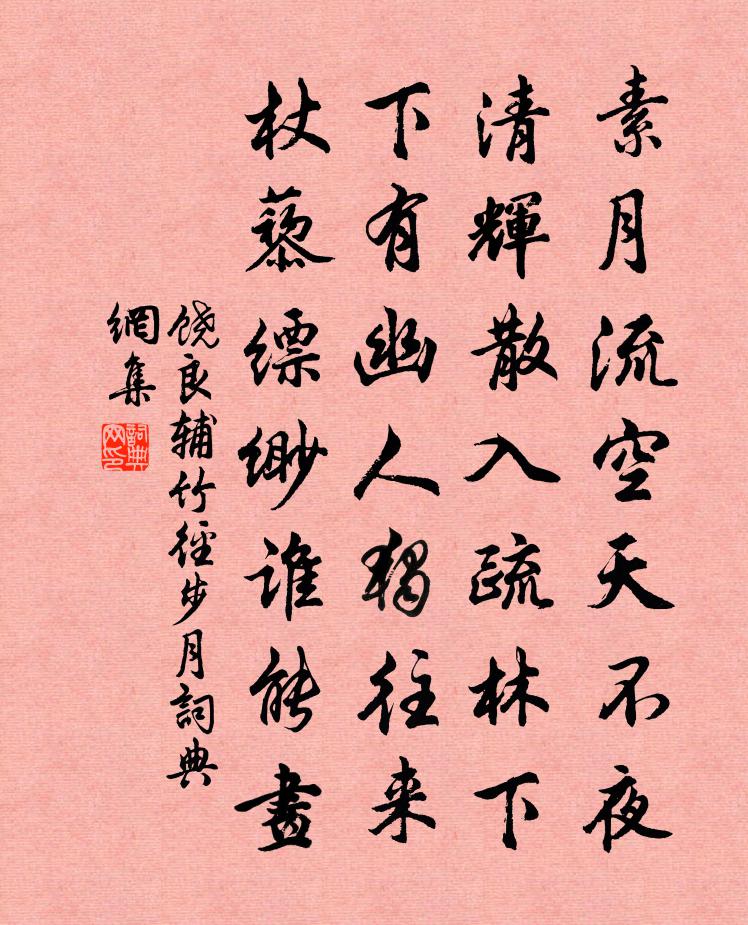 素月流空天不夜
清輝散入疏林下
下有幽人獨往来
杖藜縹緲誰能畫
饶良辅竹徑步月詞典
網集
詞典
网印